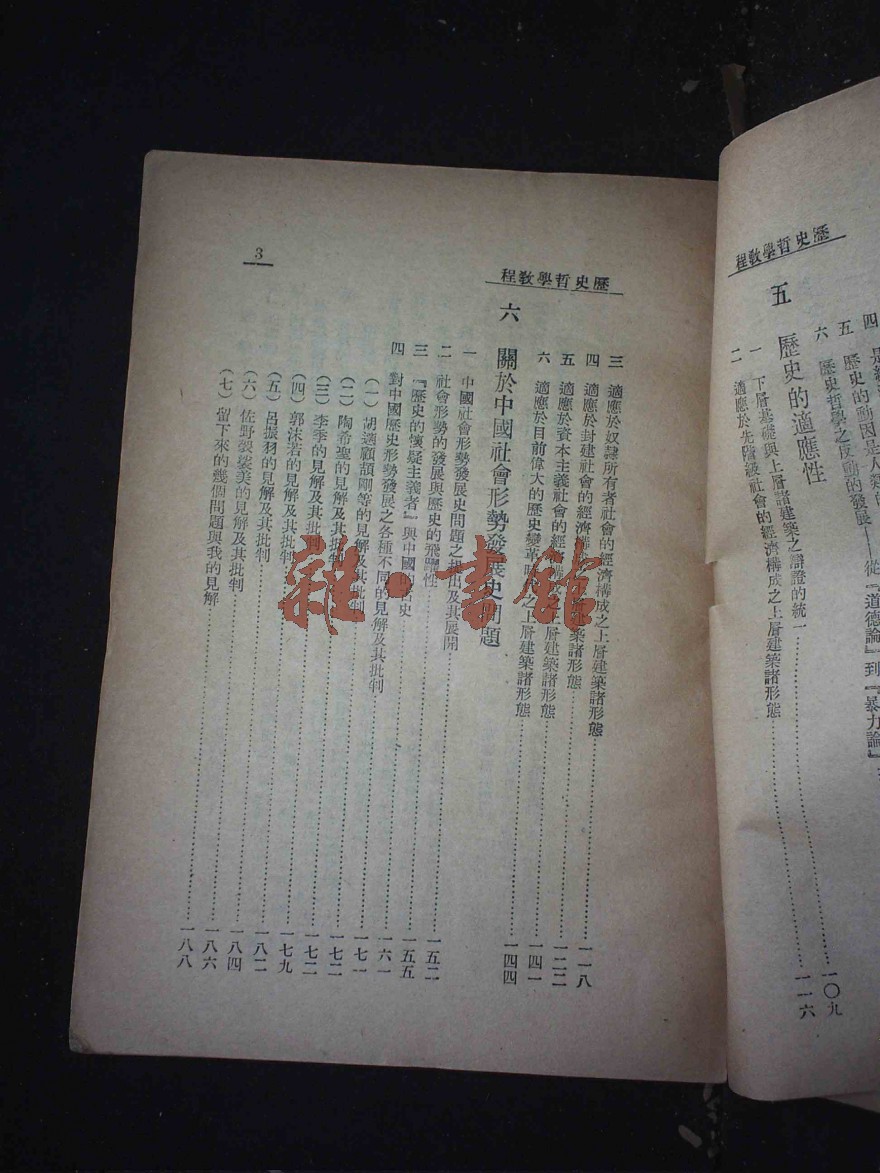 歷史哲學教程
五 歷史的動因是人類的
六 歷史哲學之反動的發展——從『道德論』到『暴力論』
五 歷史的適應性
一 下層基礎與上層諸建築之辯證的統一……一〇九
二 適應於先階級社會的經濟構成之上層建築諸形態……一一六
歷史哲學教程
3
三 適應於奴隸所有者社會的經濟構成之上層建築諸形態……一一八
四 適應於封建社會的經濟構成之上層建築諸形態……一二二
五 適應於資本主義社會的經濟構成之上層建築諸形態……一四一
六 適應於目前偉大的歷史變革時代之上層建築諸形態……一四四
六 關於中國社會形勢發展史問題
一 中國社會形勢發展史問題之提出及其展開……一五二
二 社會形勢的發展與歷史的飛躍性……一五五
三 『歷史的懷疑主義者』與中國的古史……一六一
四 對中國歷史形勢發展之各種不同的見解及其批判……一七一
（一）胡適顧頡剛等的見解及其批判……一七二
（二）陶希聖的見解及其批判……一七二
（三）李季的見解及其批判……一七九
（四）郭沫若的見解及其批判……一八二
（五）呂振羽的見解及其批判……一八四
（六）佐野袈裟美的見解及其批判……一八六
（七）留下來的幾個問題與我的見解……一八八
雜·書館